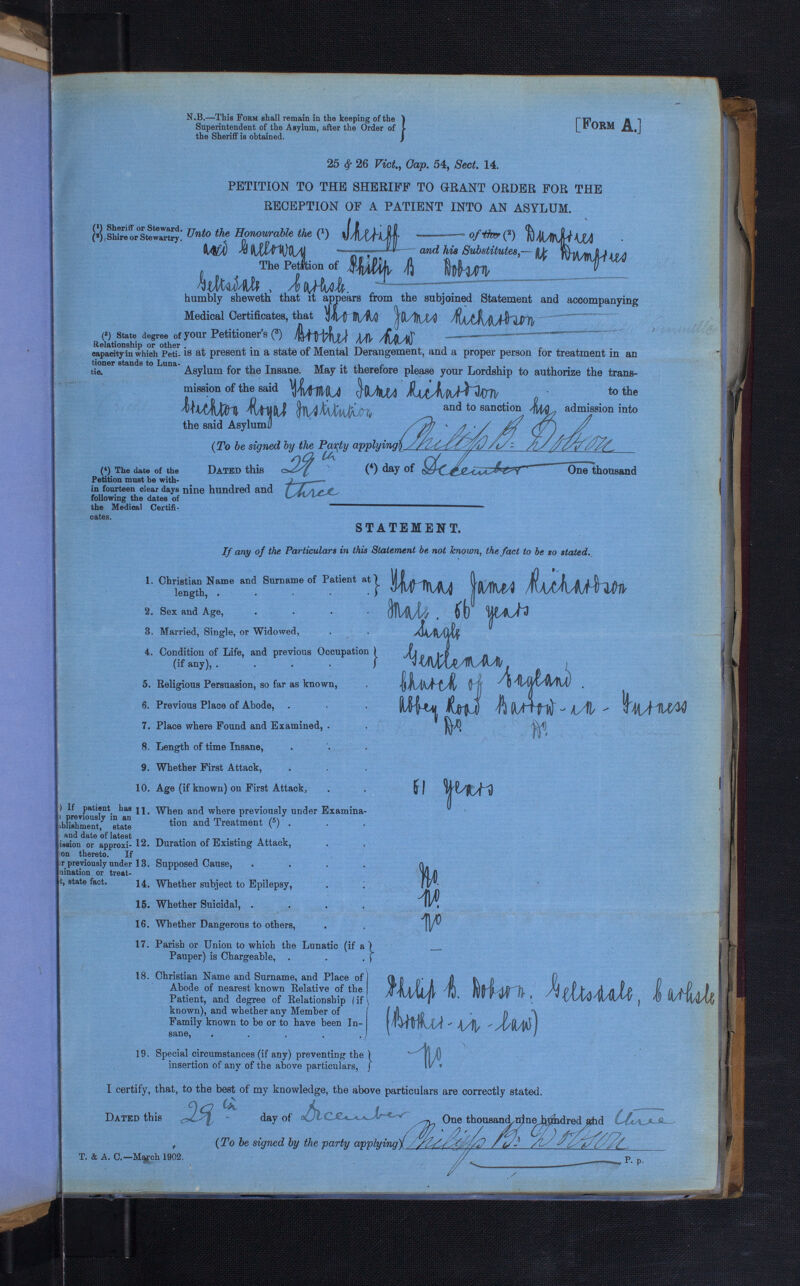 N.B.—This Form shall remain in the keeping of the
Superintendent of the Asylum, after the Order of
the Sheriff is obtained.
[Form A.]
25 & 26 Vict., Cap. 54, Sect. 14.
PETITION TO THE SHERIFF TO GRANT ORDER FOR THE
RECEPTION OF A PATIENT INTO AN ASYLUM.
(¹) Sheriff or Steward.
(²) Shire or Stewartry.
Unto the Honourable the (¹) Sheriff of the (²) Dumfries
and Galloway and his Substitutes,— at Dumfries
The Petition of Philip B Dobson
Geltsdale, Carlisle.
humbly sheweth that it appears from the subjoined Statement and accompanying
Medical Certificates, that Thomas James Richardson
(³) State degree of
Relationship or other
capacity in which Peti-
tioner stands to Luna-
tic.
your Petitioner's (³) Brother in Law
is at present in a state of Mental Derangement, and a proper person for treatment in an
Asylum for the Insane. May it therefore please your Lordship to authorize the trans-
mission of the said Thomas James Richardson to the
Crichton Royal Institution and to sanction his admission into
the said Asylum
(To be signed by the Party applying) Philip B. Dobson
(⁴) The date of the
Petition must be with-
in fourteen clear days
following the dates of
the Medical Certifi-
cates.
Dated this 29th (⁴) day of December One thousand
nine hundred and three
STATEMENT.
If any of the Particulars in this Statement be not known, the fact to be so stated.
1. Christian Name and Surname of Patient at
length, . Thomas James Richardson
2. Sex and Age, Male. 56 years
3. Married, Single, or Widowed, Single
4. Condition of Life, and previous Occupation
(if any), . Gentleman
5. Religious Persuasion, so far as known, Church of England.
6. Previous Place of Abode, . Abbey Road Barrow-in-Furness
7. Place where Found and Examined, . Do. Do.
8. Length of time Insane,
9. Whether First Attack,
10. Age (if known) on First Attack, 51 years
) If patient has
previously in an
blishment, state
and date of latest
ission or approxi-
on thereto. If
r previously under
ination or treat-
t, state fact.
11. When and where previously under Examina-
tion and Treatment (⁵) .
12. Duration of Existing Attack,
13. Supposed Cause,
14. Whether subject to Epilepsy, No.
15. Whether Suicidal, . No.
16. Whether Dangerous to others, No
17. Parish or Union to which the Lunatic (if a
Pauper) is Chargeable, . —
18. Christian Name and Surname, and Place of
Abode of nearest known Relative of the
Patient, and degree of Relationship (if
known), and whether any Member of
Family known to be or to have been In-
sane,
Philip B. Dobson. Geltsdale, Carlisle
(Brother-in-law)
19. Special circumstances (if any) preventing the
insertion of any of the above particulars, No.
I certify, that, to the best of my knowledge, the above particulars are correctly stated.
Dated this 29th day of December One thousand nine hundred and three
(To be signed by the party applying) Philip B. Dobson
T. & A. C.—March 1902.
P. p.